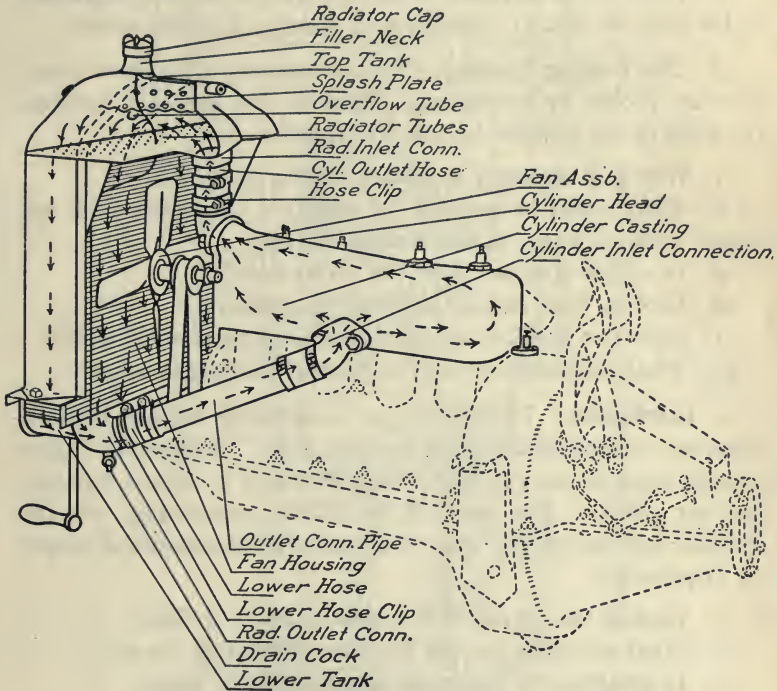 Radiator Cap
Filler Neck
Top Tank
Splash Plate
Overflow Tube
Radiator Tubes
Rad. Inlet Conn.
Cyl. Outlet Hose
Hose Clip
Fan Assb.
Cylinder Head
Cylinder Casting
Cylinder Inlet Connection.
Outlet Conn. Pipe
Fan Housing
Lower Hose
Lower Hose Clip
Rad. Outlet Conn.
Drain Cock
Lower Tank